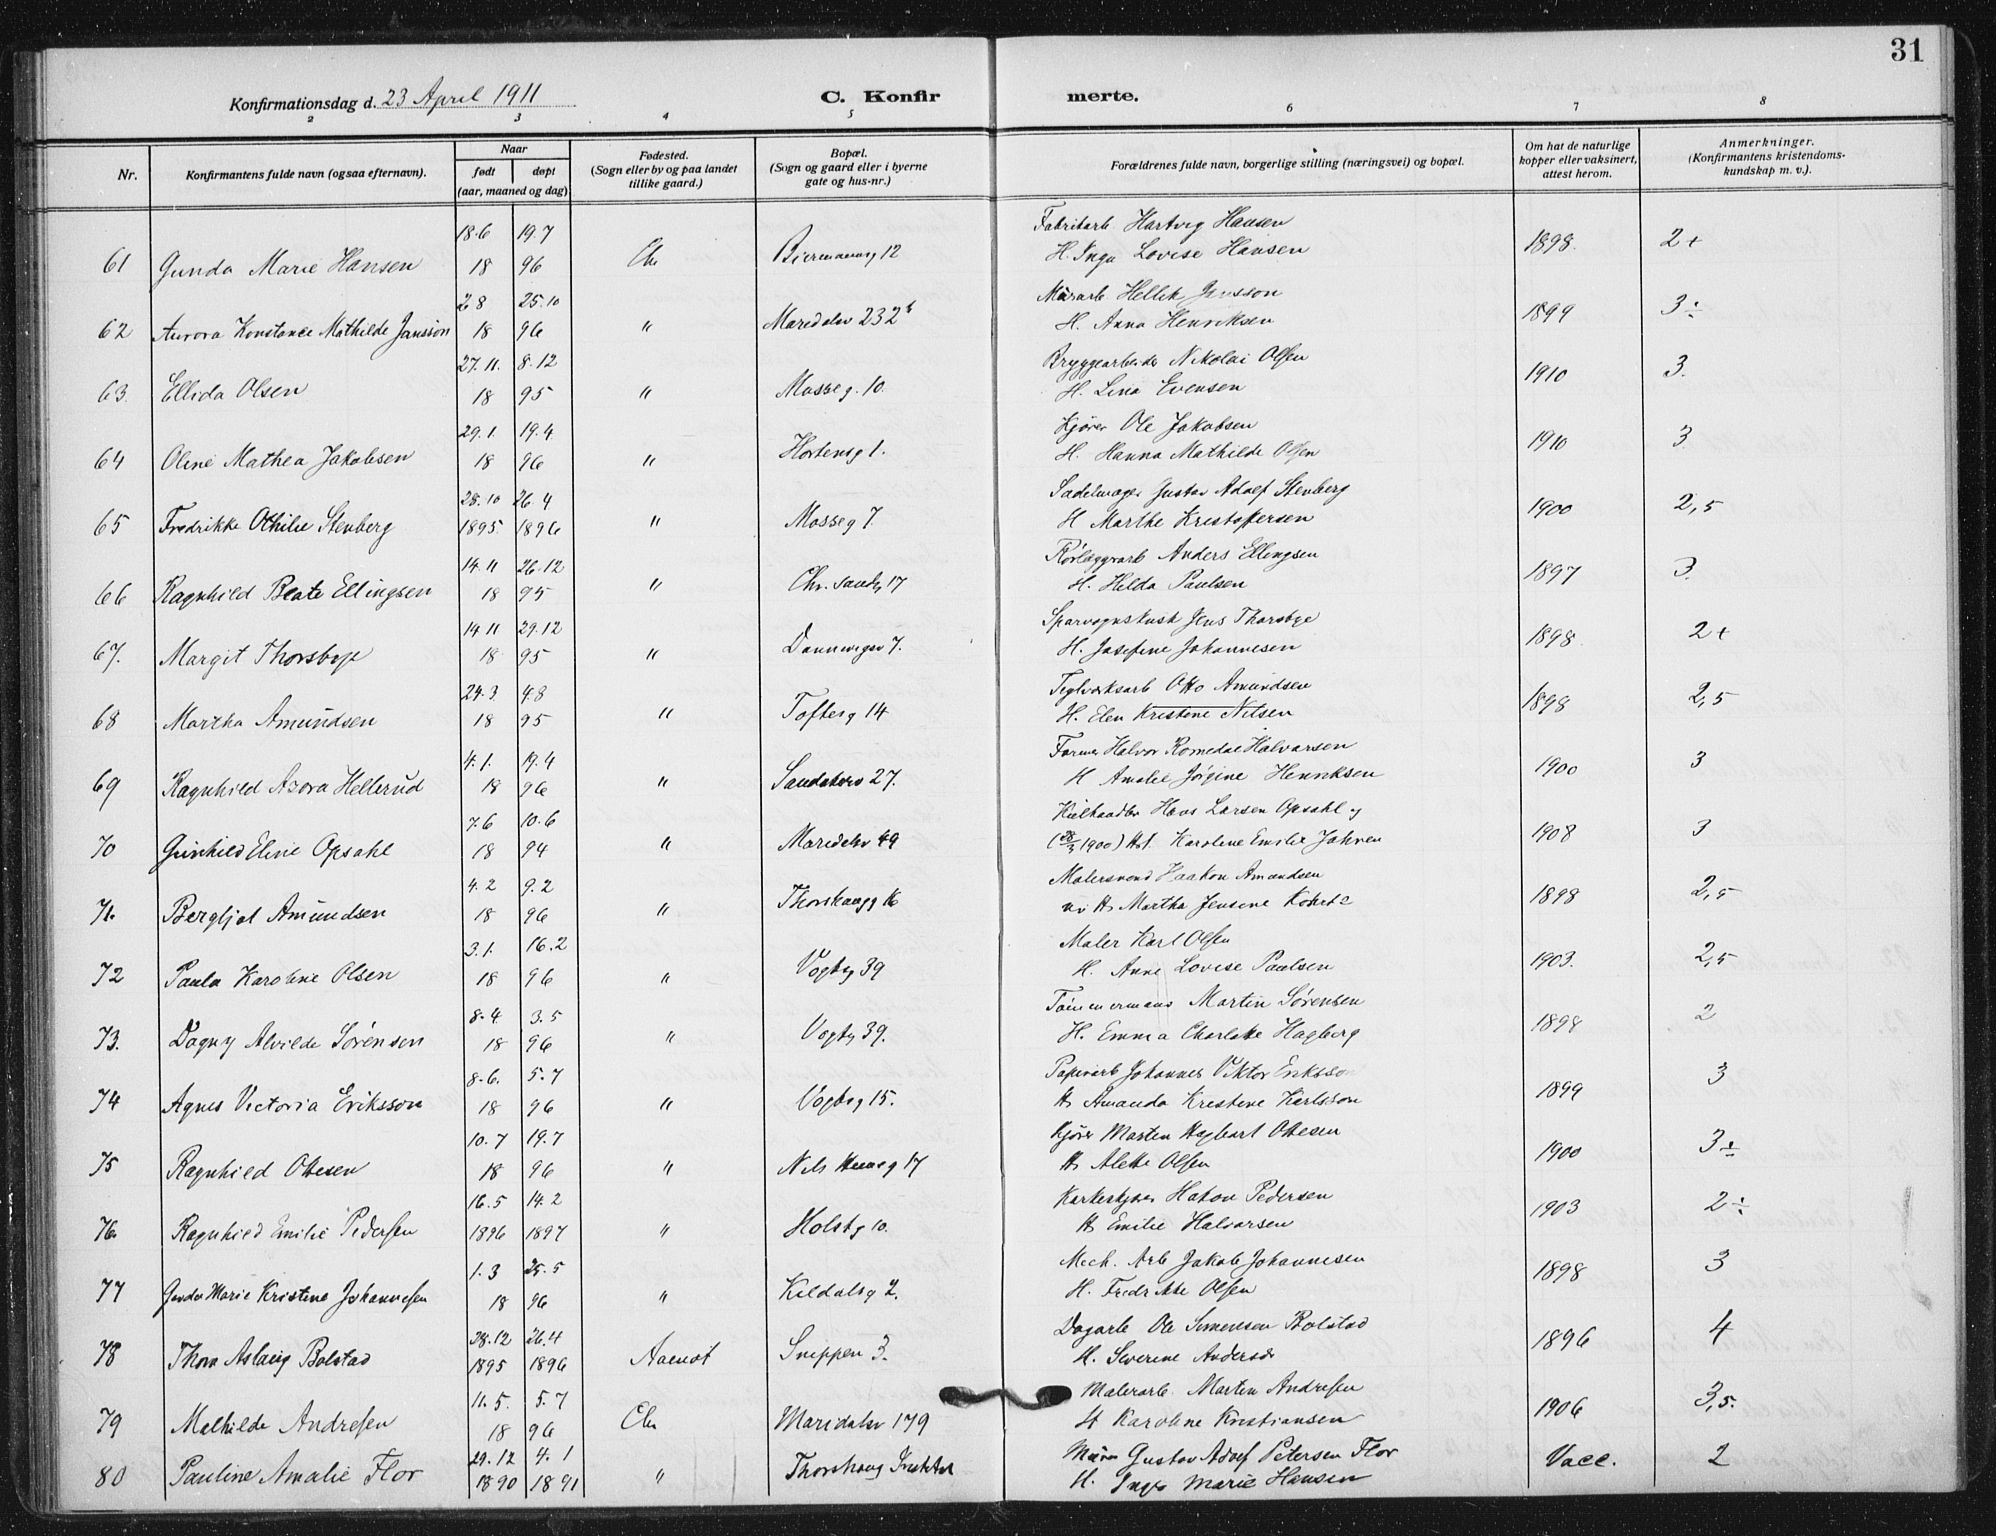 31
Konfirmationsdag d. 23 April 1911
C. Konfir merte.
2 3 4 5 6 7 8
Nr.
Konfirmantens fulde navn (ogsaa efternavn).
Naar
født døpt
(aar, maaned og dag)
Fødested.
(Sogn eller by og paa landet
tillike gaard.)
Bopæl.
(Sogn og gaard eller i byerne
gate og hus-nr.)
Forældrenes fulde navn, borgerlige stilling (næringsvei) og bopæl.
Om hat de naturlige
kopper eller vaksinert,
attest herom.
Anmerkninger.
(Konfirmantens kristendoms-
kundskap m. v.).
18.6 19.7 Fabrikarb. Hartvig Hansen
61 Gunda Marie Hansen 18 96 Chr Biermannsg 12 H. Inga Lovise Hansen 1898. 2+
28 25.10 Murarb. Hellik Jansson
62 Aurora Konstance Mathilde Jansson 18 96 " Maridalsv 232b H. Anna Henriksen 1899 3÷
27.11. 8.12 Bryggearbeider Nikolai Olsen
63. Ellida Olsen 18 95 " Mosseg. 10. H. Lina Evensen 1910 3.
29.1. 19.4. Kjører Ole Jakobsen
64 Oline Mathea Jakobsen 18 96 " Hortensg 1. H. Hanna Mathilde Olsen 1910 3
28.10 26.4 Sadelmager Gustav Adolf Stenberg
65 Fredrikke Othilie Stenberg 1895. 1896 " Mosseg 7. H Marthe Kristoffersen 1900 2,5
14.11 26.12 Rørlæggerarb Anders Ellingsen
66 Ragnhild Beate Ellingsen 18 95 " Chr. sandsg 17 H. Hilda Paulsen 1897 3.
14.11 29.12 Sporvognskusk Jens Thorsbye
67. Margit Thorsbye 18 95 " Dannevigsv 7. H. Josefine Johannesen 1898. 2+
24.3 4.8 Teglverksarb Otto Amundsen
68 Martha Amundsen 18 95 " Tofteg 14 H. Elen Kristene Nilsen 1898 2,5
4.1. 19.4 Former Halvor Romedal Halvorsen
69 Ragnhild Azora Hellerud 18 96 " Sandakerv 27. H Amalie Jørgine Henriksen 1900 3
7.6 10.6 Hans Larsen Opsahl
70 Gunhild Eline Opsahl 18 94 " Maridalsv 49 1900) Karoline Emilie Jahren 1908 3
4.2 9.2 Malersvend Haakon Amundsen
71. Bergljot Amundsen 18 96 " Thorshaugg 16 H Martha Jensine 1898 2,5
3.1. 16.2 Maler Karl Olsen
72 Paula Karoline Olsen 18 96 " Vogtsg 39 H. Anne Lovise Paulsen 1903. 2,5
8.4 3.5 Tømmermand Martin Sørensen
73. Dagny Alvilde Sørensen 18 96 " Vogtsg 39. H. Emma Charlotte Hagberg 1898 2
8.6. 5.7 Papirarb Johannes Viktor Eriksson
74 Agnes Victoria Eriksson 18 96 " Vogtsg 15. H Amanda Kristine Karlsson 1899 3
10.7 19.7 Kjører Martin Hagbart Ottesen
75 Ragnhild Ottesen 18 96 " Nels g 17 H Alette Olsen 1900 3÷
16.5 14.2 Korkeskjærer Hakon Pedersen
76. Ragnhild Emilie Pedersen 1896 1897 " Holstg 10. H Emilie Halvorsen 1903 2÷
1.3 25.5 Mech. Arb Jakob Johannesen
77 Gunda Marie Kristine Johannesen 18 96 " Kildalsg 2. H. Fredrikke Olsen 1898 3
28.12 26.4 Dagarb Ole Simensen Bolstad
78 Thora Aslaug Bolstad 1895 1896 Snippen 3. H. Severine Andersdr 1896 4
11.5. 5.7 Malerarb. Martin Andresen
79 Mathilde Andresen 18 96 Chr Maridalsv 179 H Karoline Kristiansen 1906 3,5.
29.12 4.1 Murer Gustav Adolf Petersen Flor
80 Pauline Amalie Flor 1890 1891 " Thorshaug Institut H. Inga Marie Hansen Vacc. 2